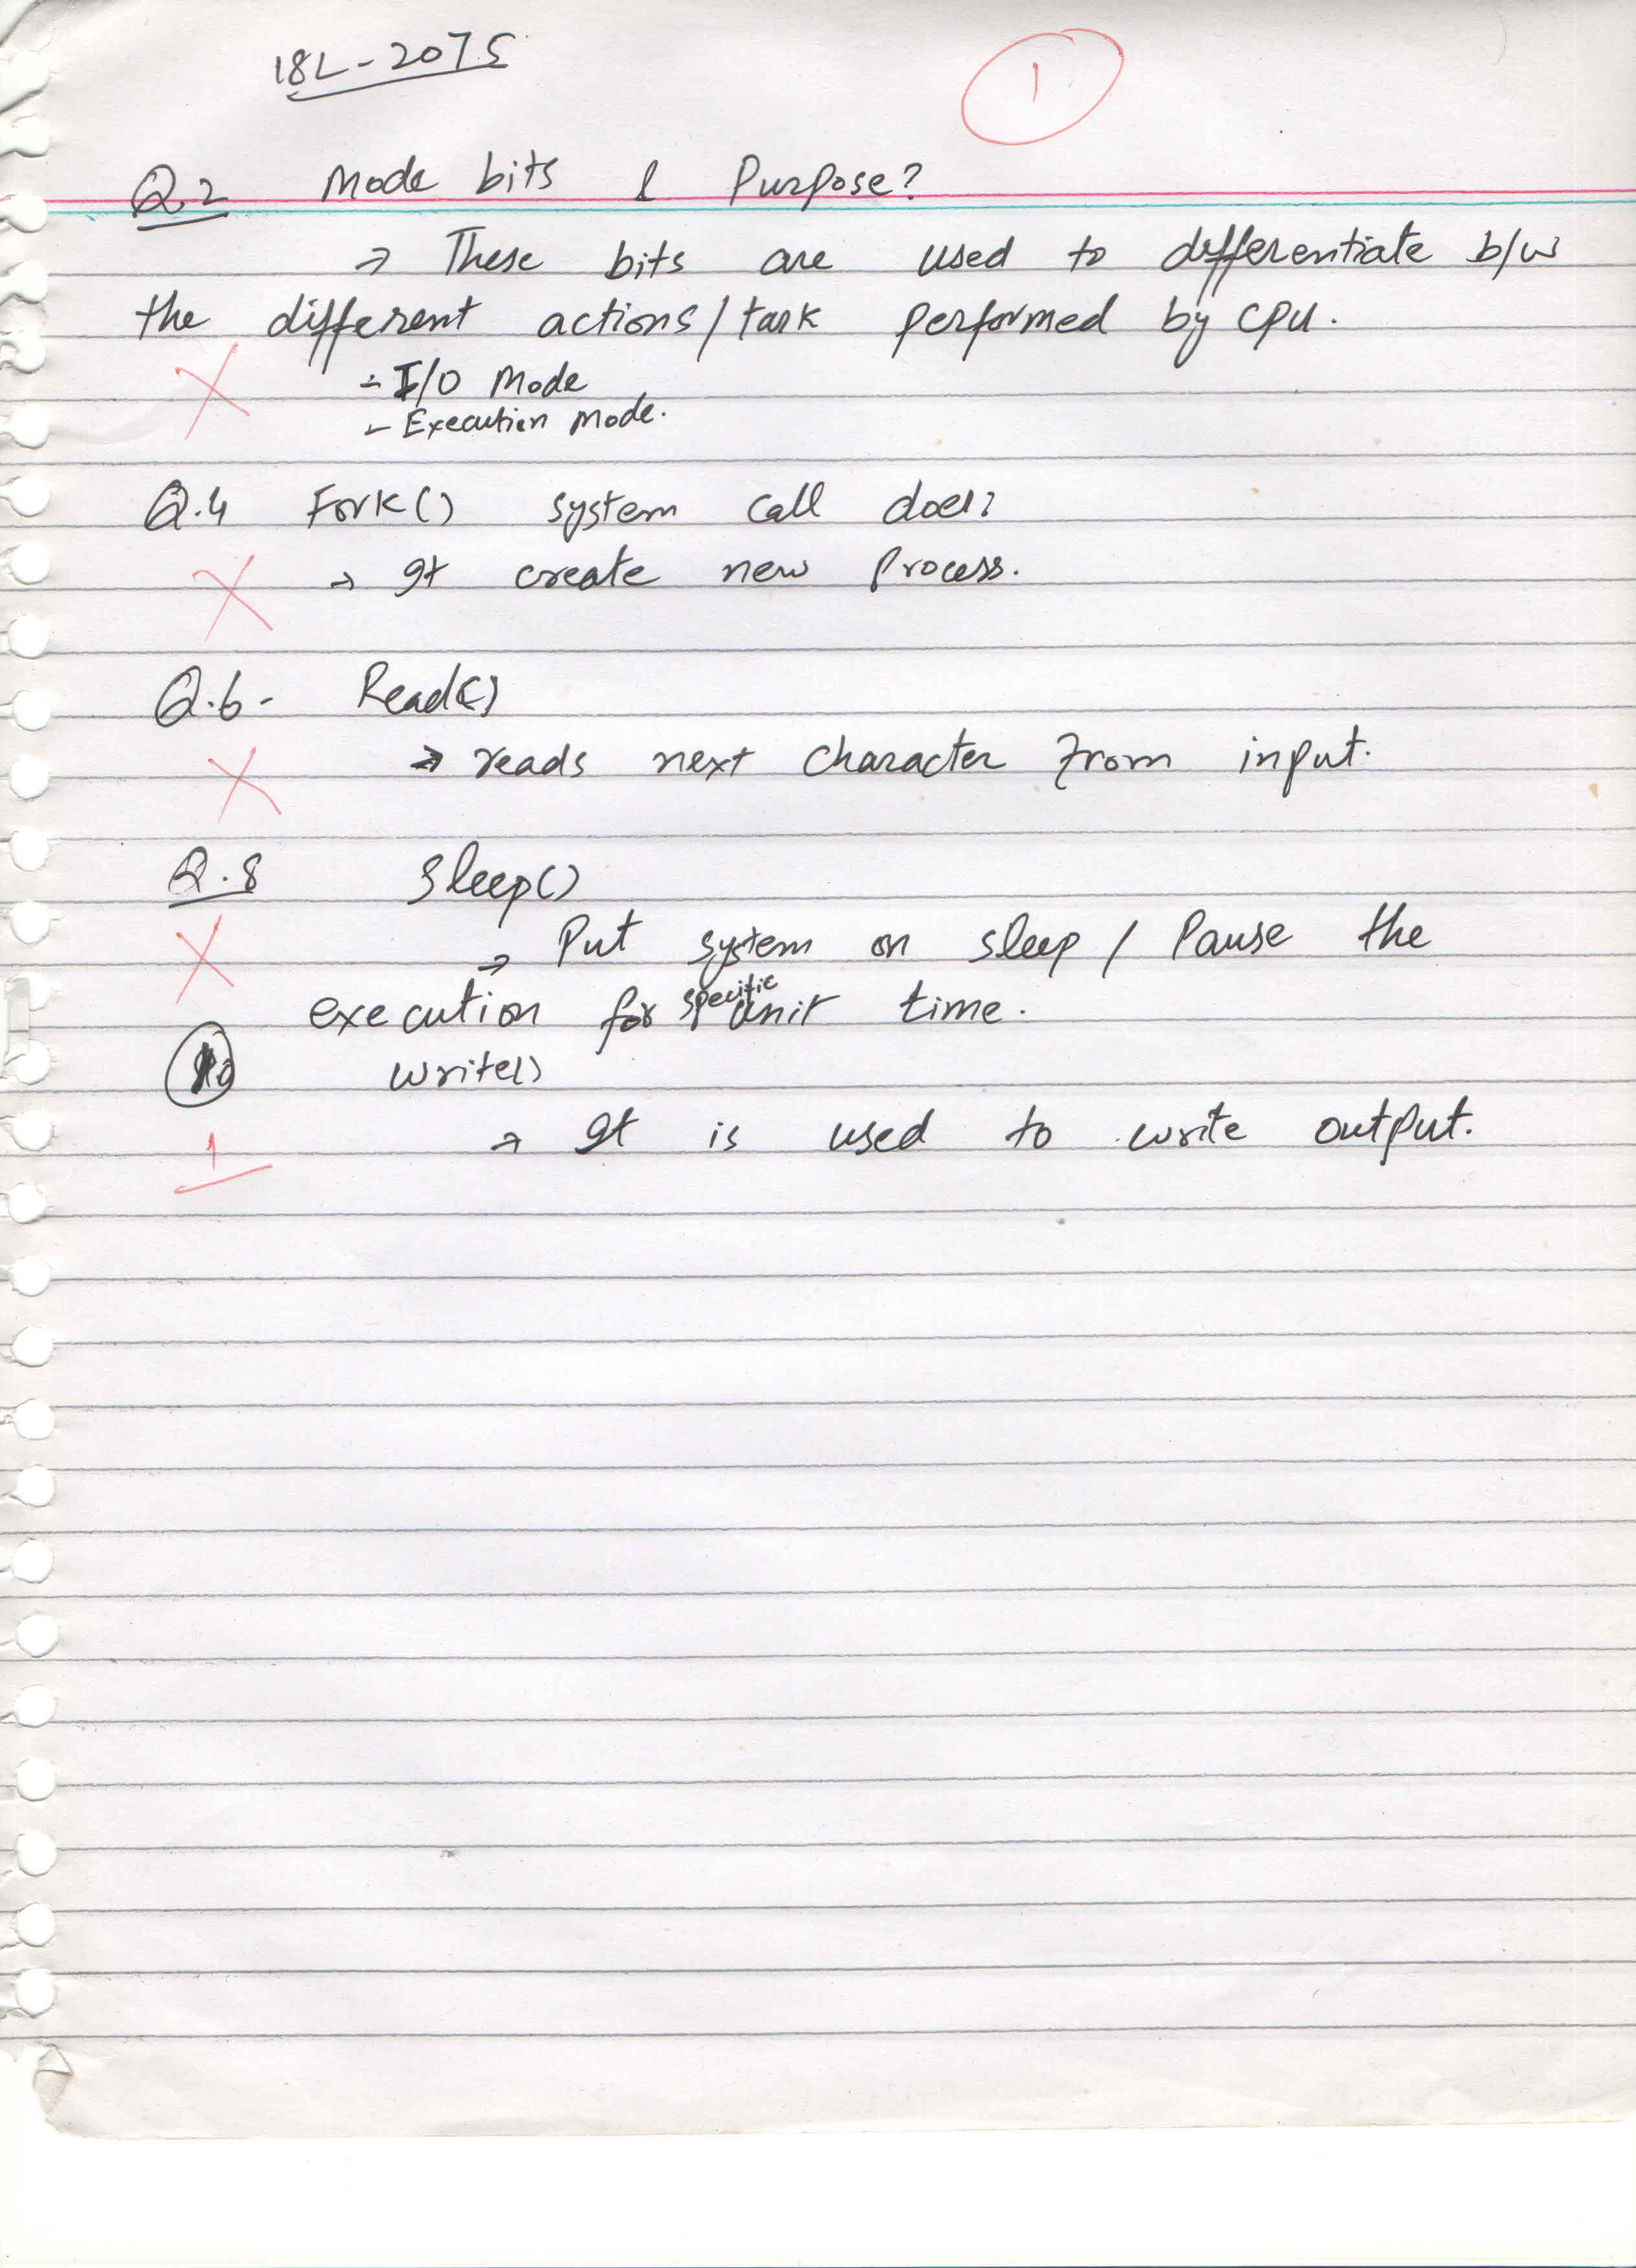 18L-2075
1
Q.2 Mode bits & Purpose?
→ These bits are used to differentiate b/w
the different actions/task performed by CPU.
- I/O Mode
- Execution Mode.
Q.4 Fork() system call does?
→ It create new Process.
Q.6- Read()
→ reads next character from input.
Q.8 Sleep()
→ Put system on sleep / Pause the
execution for specific unit time.
10 write()
→ It is used to write output.
1